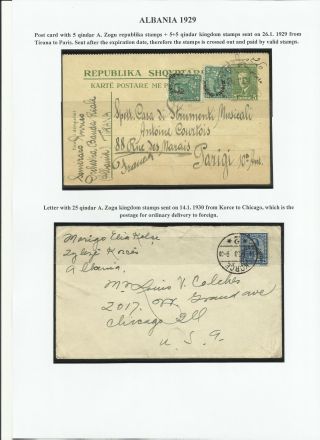 ALBANIA 1929
Post card with 5 qindar A. Zogu republika stamps + 5+5 qindar kingdom stamps sent on 26.1. 1929 from
Tirana to Paris. Sent after the expiration date, therefore the stamps is crossed out and paid by valid stamps.
REPUBLIKA SHQYPTARE
KARTË POSTARE ME
Spett. Casa di Strumenti Musicali
Antoine Courtois
88 Rue des Marais
Parigi 10e Arr.
Letter with 25 qindar A. Zogu kingdom stamps sent on 14.1. 1930 from Korce to Chicago, which is the
postage for ordinary delivery to foreign.
Albania.
Mr Louis V. Calches
2017. W. Grand ave
Chicago Ill
U. S. A